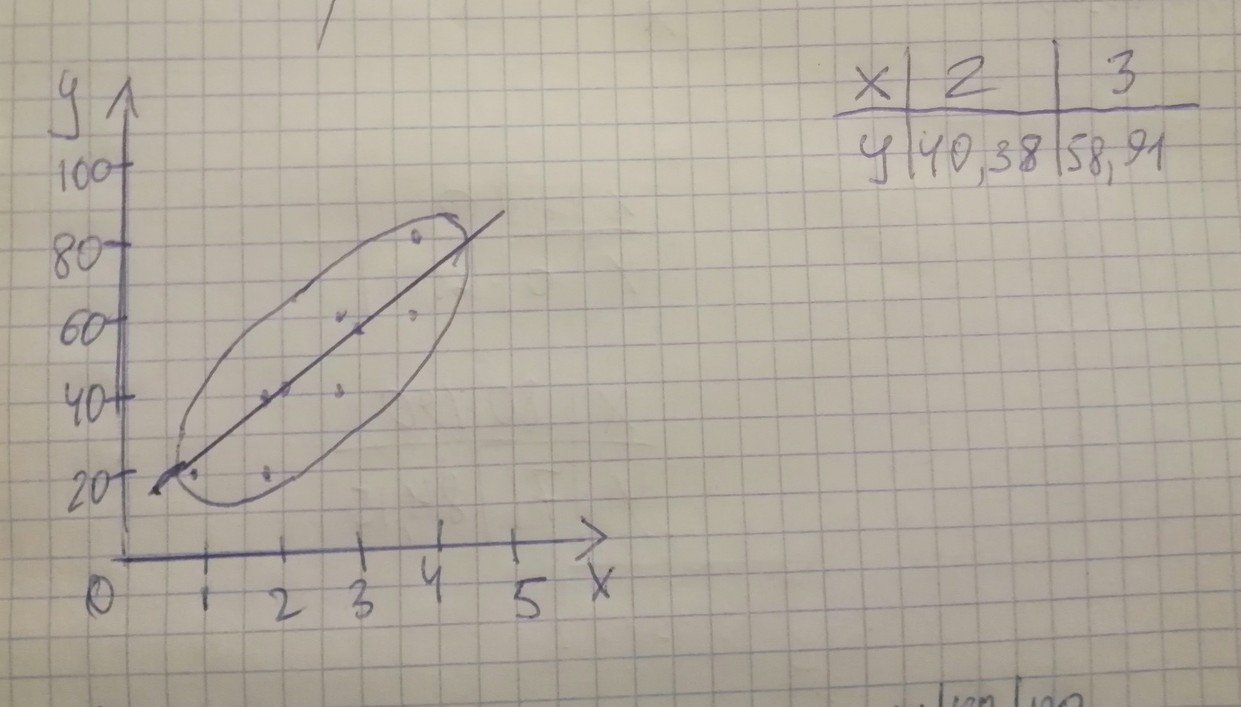 y
100
80
60
40
20
0 1 2 3 4 5 x
x 2 3
y 40,38 58,91